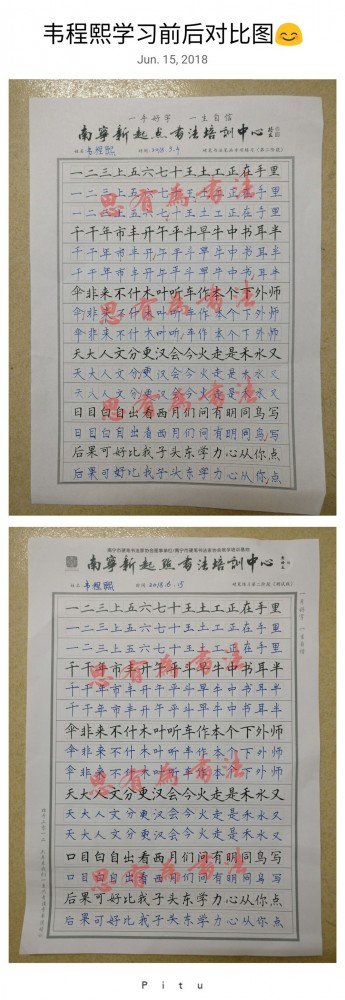 韦程熙学习前后对比图😊
Jun. 15, 2018
一手好字 一生自信
南宁新起点书法培训中心
姓名 韦程熙 时间: 2018.3.4
一二三上五六七十王土工正在手里
一二三上五六七十王土工正在手里
一二三上五六七十王土工正在手里
干千年市丰开午平斗早牛中书耳半
干千年市丰开午平斗早牛中书耳半
干千年市丰开午平斗早牛中书耳半
伞非来不什木叶听车作本个下外师
伞非来不什木叶听车作本个下外师
伞非来不什木叶听车作本个下外师
天大人文分更汉会今火走是禾水又
天大人文分更汉会今火走是禾水又
天大人文分更汉会今火走是禾水又
日目白自出看西月们问有明同鸟写
日目白自出看西月们问有明同鸟写
后果可好比我子头东学力心从你点
后果可好比我子头东学力心从你点
思有为书法
思有为书法
思有为书法
南宁新起点书法培训中心
姓名 韦程熙 时间: 2018.6.15
一手好字 一生自信
一二三上五六七十王土工正在手里
一二三上五六七十王土工正在手里
一二三上五六七十王土工正在手里
干千年市丰开午平斗早牛中书耳半
干千年市丰开午平斗早牛中书耳半
干千年市丰开午平斗早牛中书耳半
伞非来不什木叶听车作本个下外师
伞非来不什木叶听车作本个下外师
伞非来不什木叶听车作本个下外师
天大人文分更汉会今火走是禾水又
天大人文分更汉会今火走是禾水又
天大人文分更汉会今火走是禾水又
口目白自出看西月们问有明同鸟写
口目白自出看西月们问有明同鸟写
后果可好比我子头东学力心从你点
后果可好比我子头东学力心从你点
思有为书法
思有为书法
思有为书法
Pitu